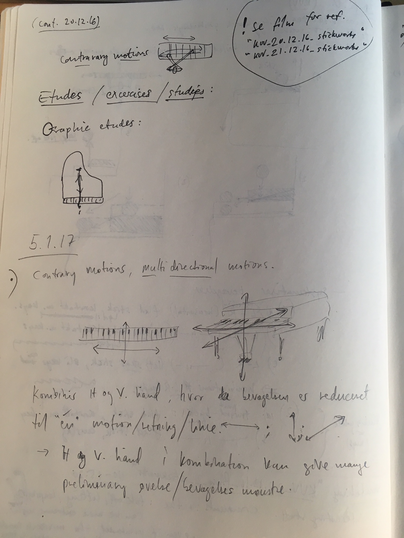 (cont. 20.12.16)
! se film for ref.
"wv_20.12.16_stickworks"
"wv_21.12.16_stickworks"
Contrary motions
Etudes / excercises / studies:
Graphic etudes:
5.1.17
Contrary motions, multidirectional motions.
Kombinér H og V. hånd, hvor da bevægelsen er reduceret
til "én" motion/retning/linie. ; ;
→ H og V. hånd i kombination kan give mange
preliminary øvelse/bevægelses mønstre.